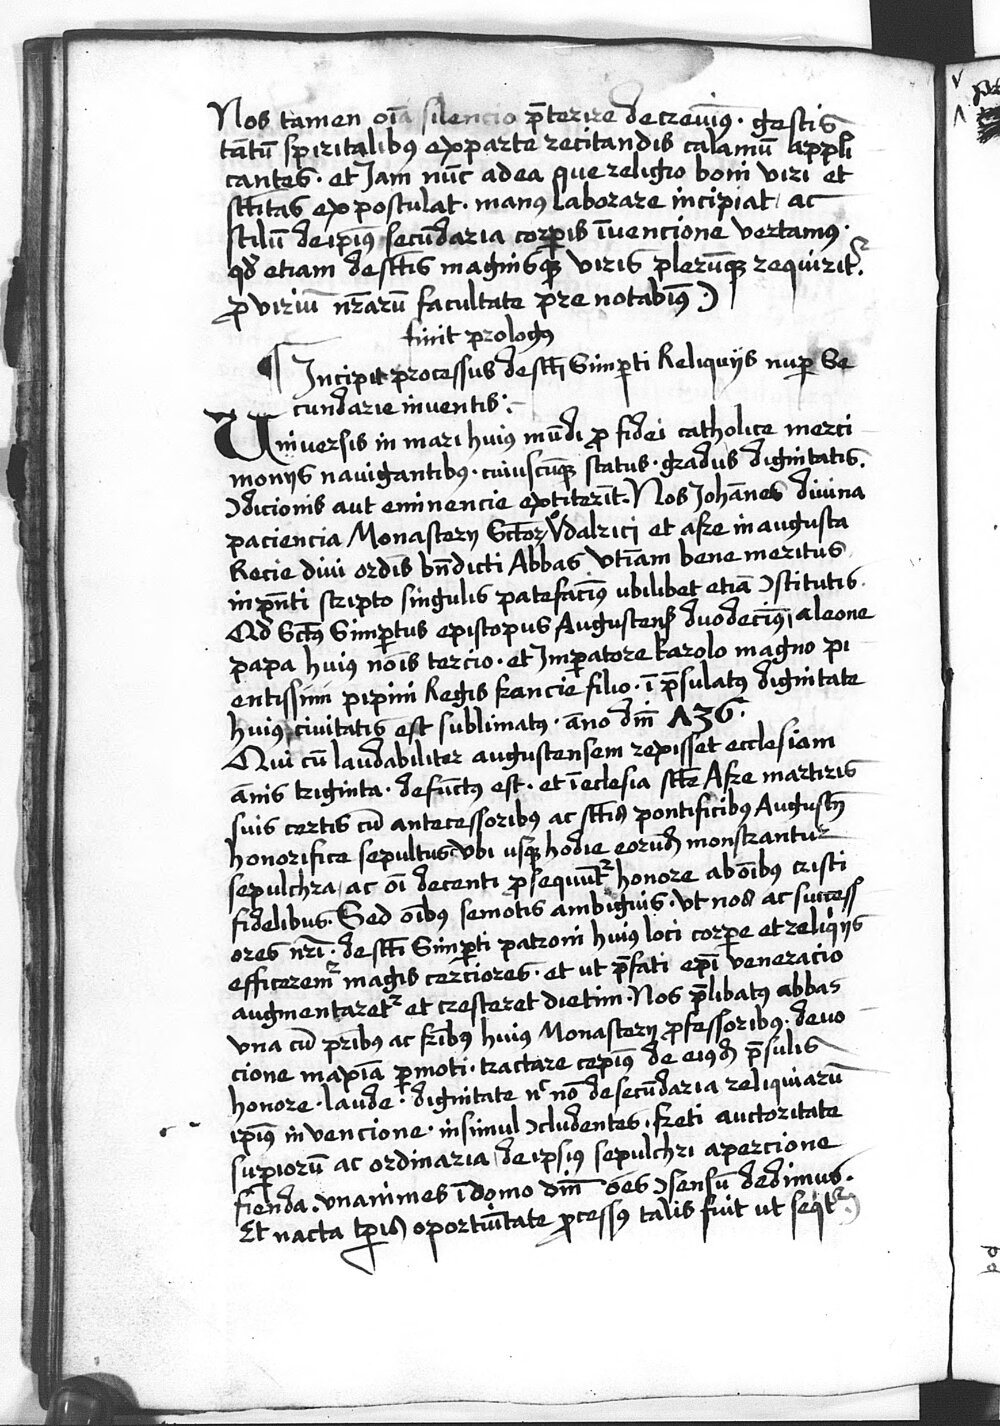 Nos tamen oīa silencio p̄terire decrevim⁹ · gestis
tātū spiritalibus ex parte recitandis calamū appli
cantes · et Jam nūc ad ea que religio boni viri et
sctītas expostulat · manus laborare incipiat ac
stilū de ipī⁹ secūdaria corꝑis īvencione vertamus ·
qđ etiam de sctīs magnisqꝫ viris plerūqꝫ requirit᷑ ·
ꝓ viriū nr̄arū facultate prenotabim⁹
finit prologus
¶ Incipit processus de sctī Simꝑti Reliquijs nuꝑ Se
cundarie inventis :·
Universis in mari huius mūdi ꝓ fidei catholice merci
monijs navigantibus · cuiuscūqꝫ status · gradus dignitatis ·
ↄdicionis aut eminencie extiterīt · Nos Johānes divina
paciencia Monasterij Sctōrꝫ Vͦdalrici et afre in augusta
Recie divi ordīs bn̄dicti Abbas vtīam bene meritus
in pn̄ti scripto singulis patefacim⁹ ubilibet etiā ↄstitutis ·
Qđ Sctūs Simꝑtus episcopus Augusteñ duodecim⁹ a leone
papa huius noīs tercio · et Imꝑatore karolo magno pi
entissimi pipini Regis francie filio · ī p̄sulatus dignitate
huius civitatis est sublimatus · āno dnī 736 ·
Qui cū laudabiliter augustensem rexisset ecclesiam
ānis triginta · defūctus est · et ī eclesia sctē Afre martiris
suis certis cū antecessoribus ac sctīs pontificibus Augusteñ
honorifice sepultus Vbi usqꝫ hodie eorūđ monstrantur
sepulchra ac oī decenti ꝓsequūt᷑ honore ab oībus cristi
fidelibus · Sed oībus semotis ambiguis · Vt nos ac success
ores nr̄i · de sctī Simꝑti patroni huius loci corꝑe et reliquijs
efficerem᷑ magis cerciores · et ut p̄fati ep̄i veneracio
augmentaret᷑ et cresteret dietim · Nos p̄libatus abbas
vna cū pr̄ibus ac fr̄ibus huius Monasterij ꝓfessoribus · devo
cione maxīa ꝑmoti · tractare cepim⁹ de eiusđ p̄sulis
honore · laude · dignitate nͨ nō de secūdaria reliquiarū
ipī⁹ invencione · insimul ↄcludentes · freti auctoritate
suꝑiorū ac ordinaria de ipsius sepulchri apercione
fienda · vnanimes ī domo dnī oēs ↄsensū dedimus ·
Et nacta tꝑis oportūitate ꝓcessus talis fuit ut seqit᷑